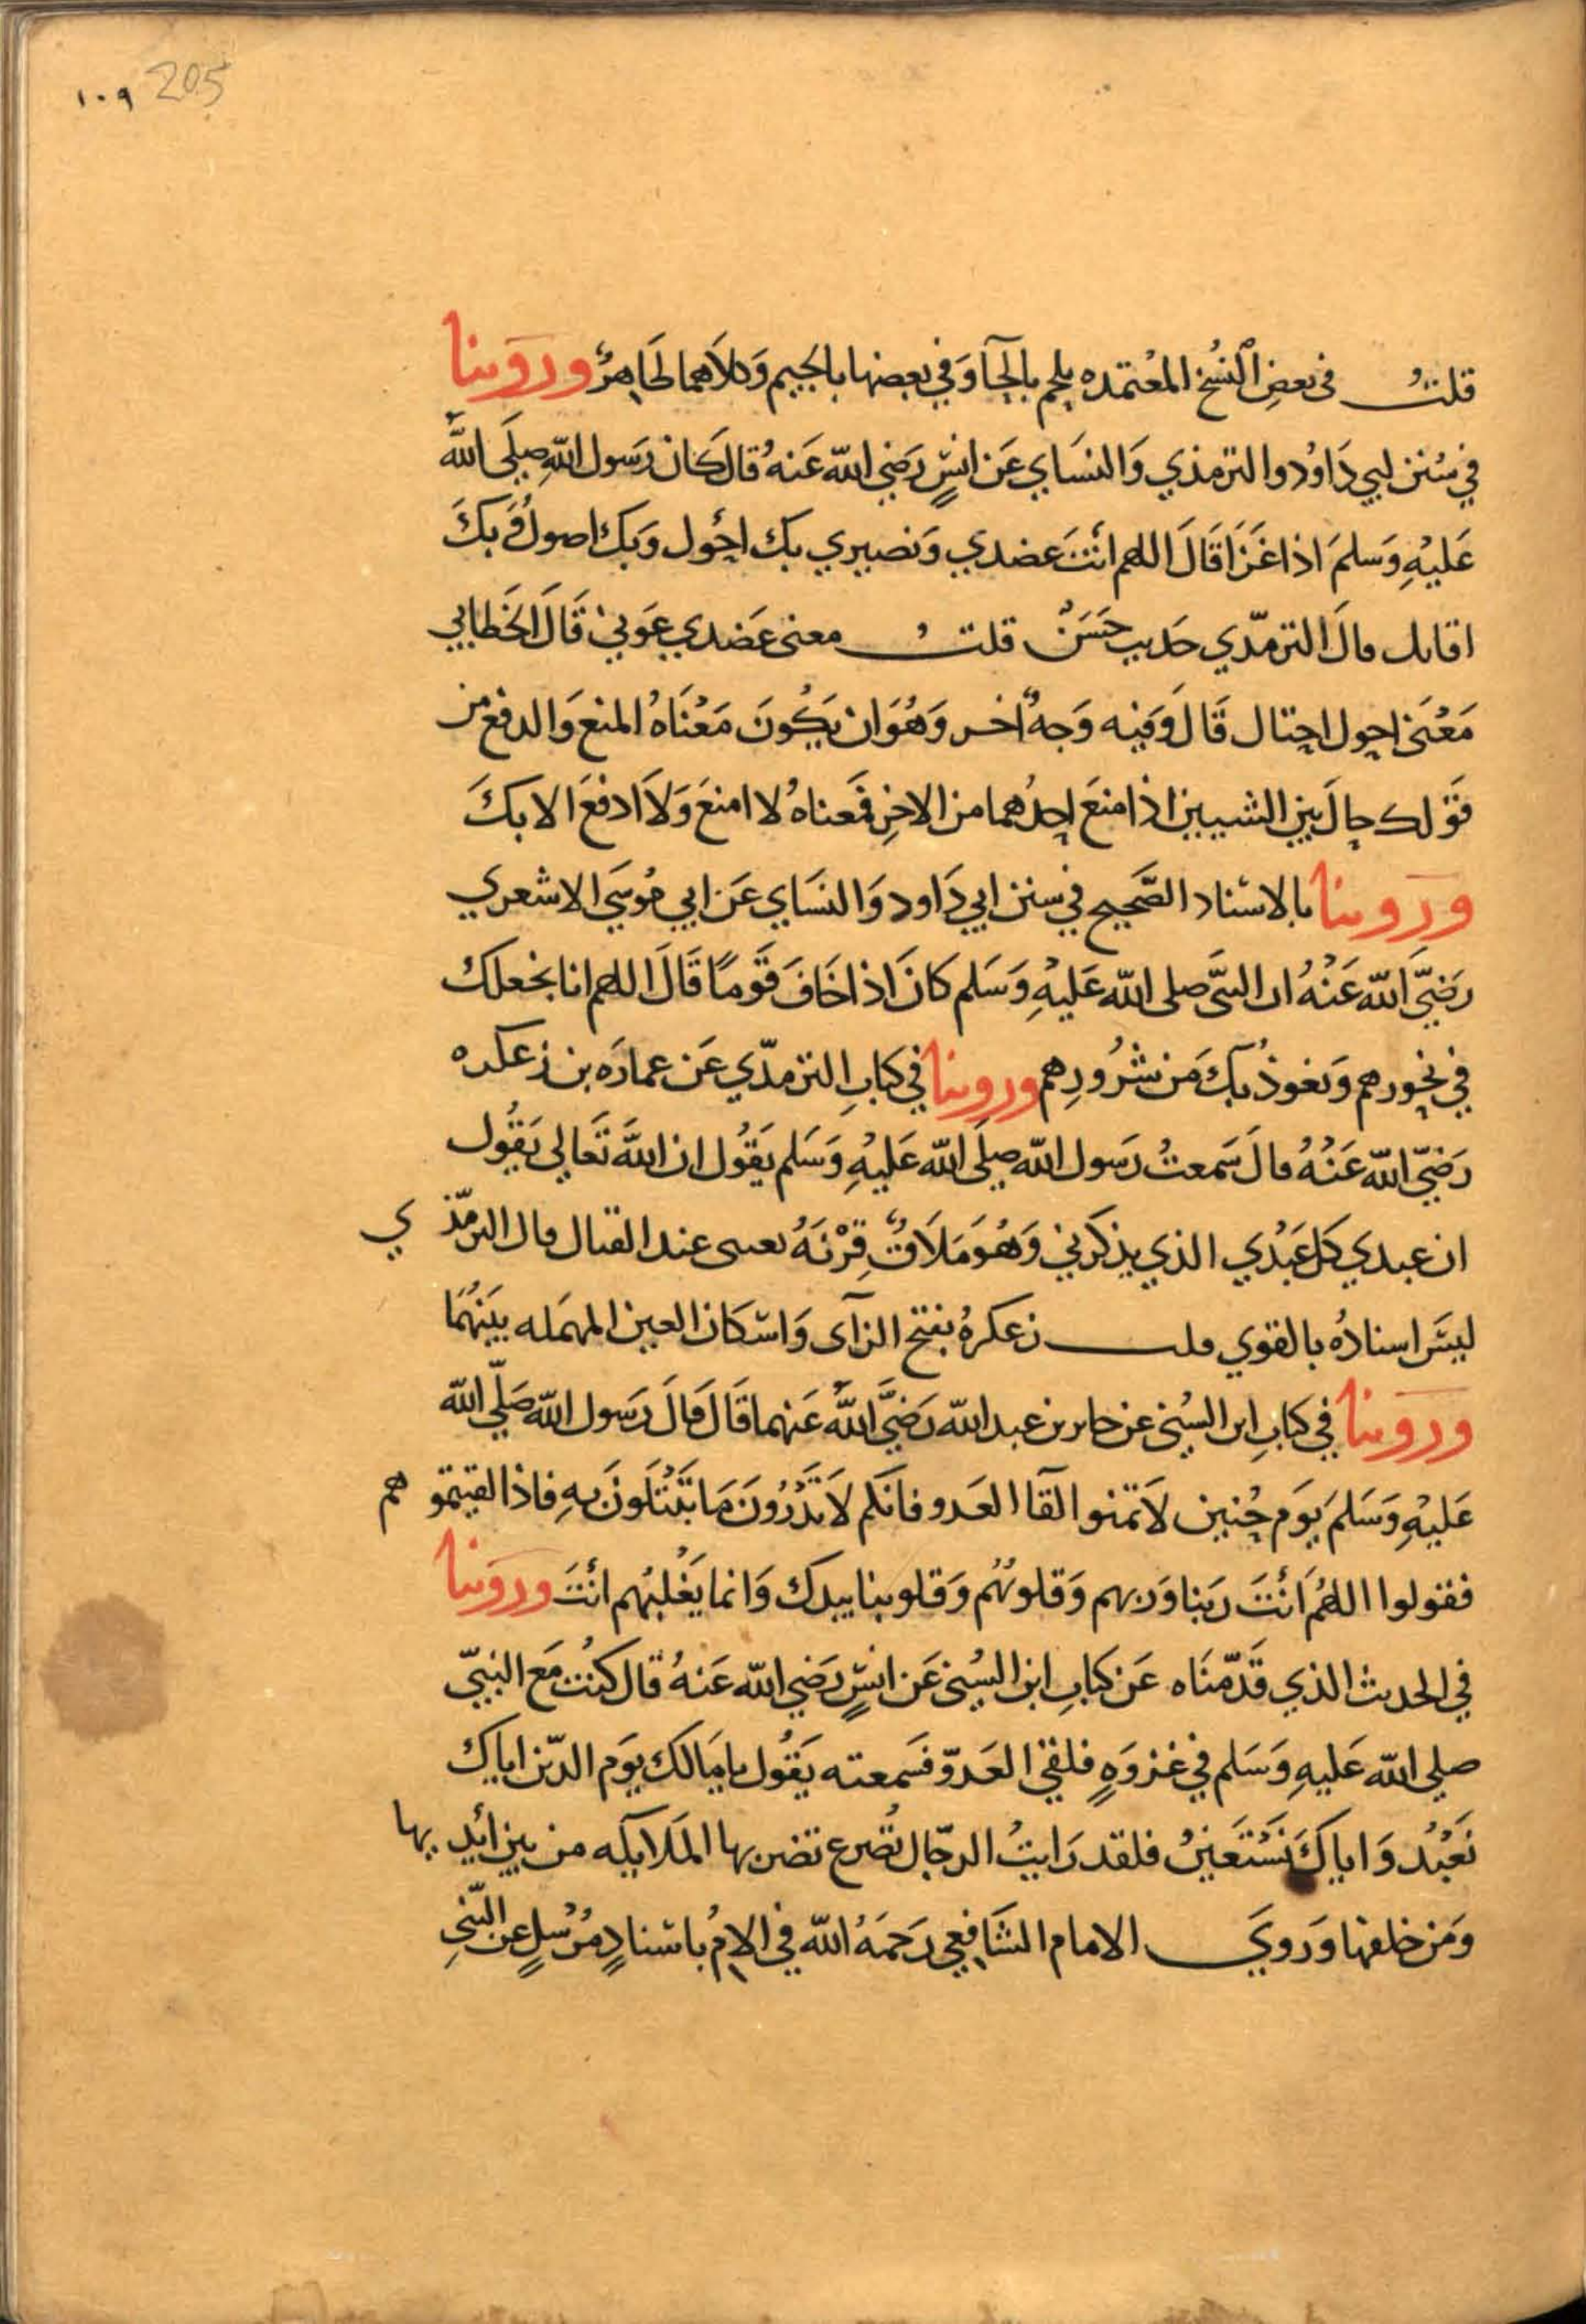 ١٠٩ 205
قلتُ في بعضِ النُسخ المُعْتمده يلحم بالحآ وَفي بعضها بالجيم وَكلاَهما ظَاهِرٌ ورَوَينا
في سُنن ابي دَاوُد والترمذي وَالنسَاي عَن انسٍ رَضي الله عَنهُ قال كَان رَسول اللهِ صلَى اللهُ
عَليْهِ وَسَلمَ اذا غَزَا قَالَ اللهم انْتَ عضدي وَنصيري بك احُول وَبك اصولُ وَبكَ
اقاتل قالَ الترمذّي حَديث حَسَنٌ قلتُ معنى عَضدي عَوني قَالَ الخَطابي
مَعْنَى احول احتال قَالَ وَفيه وَجهٌ اخر وَهُوَ ان يَكُونَ مَعْنَاهُ المنع وَالدفع من
قَوْلك حالَ بين الشيين اذا منعَ احدُهما من الاخرِ فمَعناهُ لا امنعَ وَلاَ ادفعَ الا بكَ
ورَوينا بالاسْناد الصَّحيح في سنن ابي دَاود وَالنسَاي عَن ابي مُوسَى الاشعري
رَضيَّ اللهَ عَنْهُ ان النبيَّ صلى الله عَليْهِ وَسَلم كانَ اذا خَافَ قَومًا قَالَ اللهم انا نجعلك
في نحورهم وَنعوذُ بكَ مَن شرُورِهم ورَوينا في كتابِ الترمذّي عَن عمارَه بن زعكره
رَضيّ الله عَنْهُ قالَ سَمعتُ رَسول الله صلَى الله عَليْهِ وَسَلم يَقُول ان اللهَ تَعَالي يَقُول
ان عبدي كلَ عَبْدي الذي يذكرني وَهُوَ مَلاَقٌ قِرْنَهُ يعني عند القتال قال الترمّذي
ليسَ اسنادُه بالقوي قلت زعكرهُ بفتح الزآى وَاسْكان العين المهمَله بينَهُمَا
ورَوينا في كتابِ ابن السُني عن جابر بن عبد الله رَضيَّ اللهُ عَنهما قَالَ قَالَ رَسول الله صَلّي الله
عَليْهِ وَسَلمَ يَوَم حُنين لاَ تمنوا لقآا العَدو فانكم لاَ تَدْرُونَ مَا تَبْتُلَونَ بهِ فاذا لقيتموهم
فقولوا اللهُمَ انْتَ ربَنا وَربهم وَقلوبُهُم وَقلوبنا بيدك وَانما يَغْلبُهم انْتَ ورَوَينا
في الحديث الذي قَدّمنَاه عَن كتابِ ابن السُني عَن انسٍ رَضي الله عَنهُ قال كنُت مَع النبيّ
صلي الله عَليهِ وَسَلم في غزوَهٍ فلقي العَدوّ فسَمعته يَقُول يامَالك يوَم الدّين اياك
نَعْبُد وَاياكَ نَسْتَعَينُ فلقد رَايتُ الرجّال تُصرع تضربها المَلايكه من بين ائيديها
وَمَن خلفها وَرويَ الامام الشَافعي رَحمَهُ الله في الامُ باسْنادٍ مُرْسلٍ عن النبي